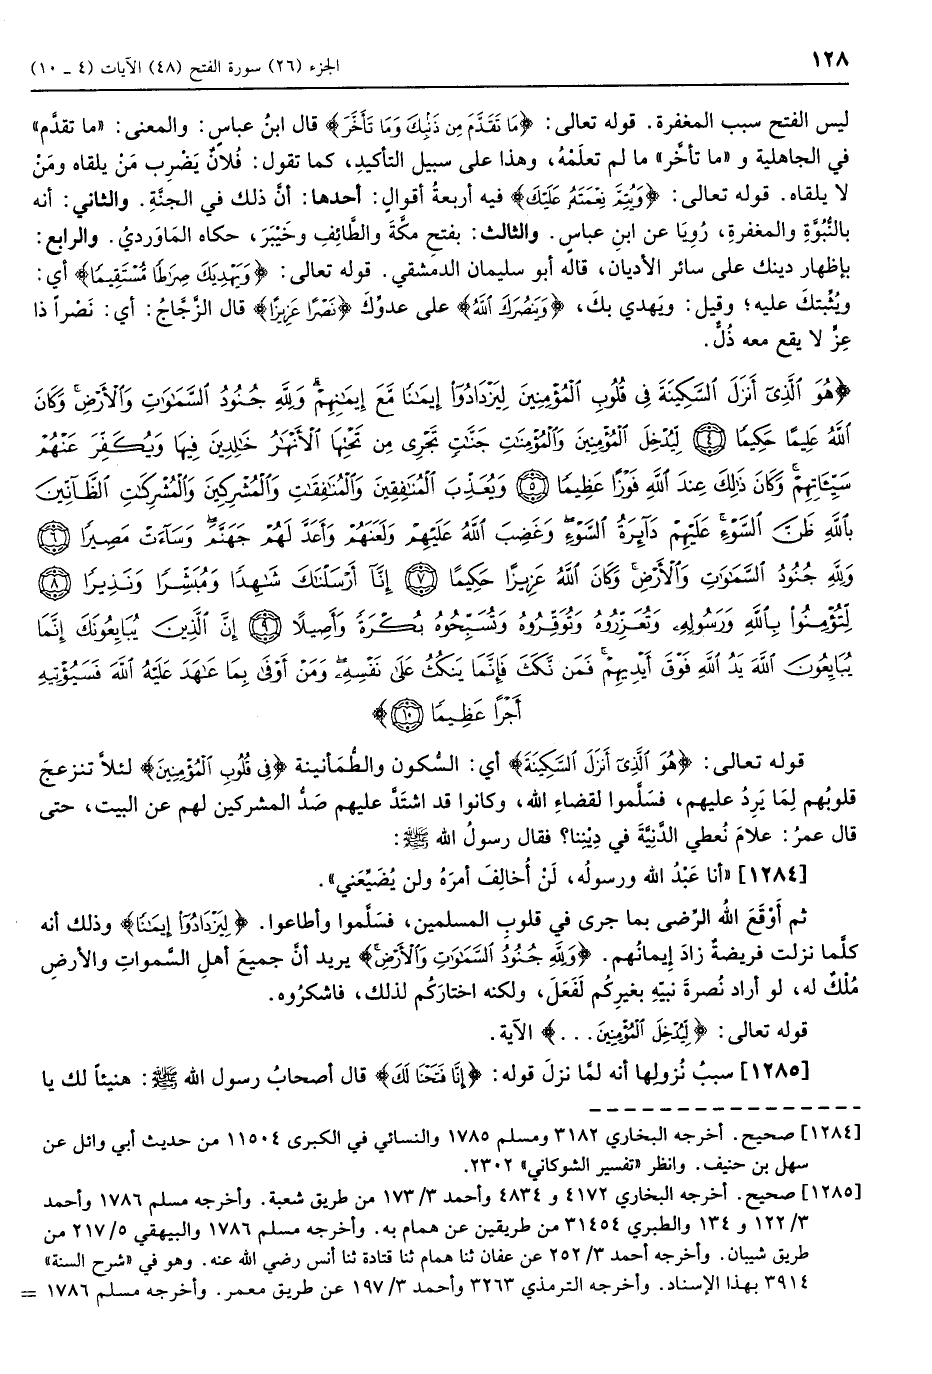 ١٢٨
الجزء (٢٦) سورة الفتح (٤٨) الآيات (٤ ـ ١٠)
ليس الفتح سبب المغفرة. قوله تعالى: ﴿مَا تَقَدَّمَ مِن ذَنۢبِكَ وَمَا تَأَخَّرَ﴾ قال ابنُ عباسٍ: والمعنى: «ما تقدَّم»
في الجاهلية و «ما تأخَّر» ما لم تعلَمْهُ، وهذا على سبيل التأكيدِ، كما تقول: فُلانٌ يَضْرِب مَنْ يلقاه ومَنْ
لا يلقاه. قوله تعالى: ﴿وَيُتِمَّ نِعْمَتَهُۥ عَلَيْكَ﴾ فيه أربعةُ أقوالٍ: أحدها: أنَّ ذلك في الجنَّةِ. والثاني: أنه
بالنُّبُوَّةِ والمغفرةِ، رُوِيَا عن ابنِ عباسٍ. والثالث: بفتحِ مكَّةَ والطَّائِفِ وخَيْبَرَ، حكاه المَاوَرديُّ. والرابع:
بإظهارِ دينك على سائر الأديان، قاله أبو سليمان الدمشقي. قوله تعالى: ﴿وَيَهْدِيَكَ صِرَٰطًا مُّسْتَقِيمًا﴾ أي:
ويُثَبِّتكَ عليه؛ وقيل: ويَهدي بكَ، ﴿وَيَنصُرَكَ ٱللَّهُ﴾ على عدوِّكَ ﴿نَصْرًا عَزِيزًا﴾ قال الزَّجَّاجُ: أي: نَصْراً ذا
عِزٍّ لا يقع معه ذُلٌّ.
﴿هُوَ ٱلَّذِىٓ أَنزَلَ ٱلسَّكِينَةَ فِى قُلُوبِ ٱلْمُؤْمِنِينَ لِيَزْدَادُوٓا۟ إِيمَٰنًا مَّعَ إِيمَٰنِهِمْ ۗ وَلِلَّهِ جُنُودُ ٱلسَّمَٰوَٰتِ وَٱلْأَرْضِ ۚ وَكَانَ
ٱللَّهُ عَلِيمًا حَكِيمًا ٤ لِّيُدْخِلَ ٱلْمُؤْمِنِينَ وَٱلْمُؤْمِنَٰتِ جَنَّٰتٍ تَجْرِى مِن تَحْتِهَا ٱلْأَنْهَٰرُ خَٰلِدِينَ فِيهَا وَيُكَفِّرَ عَنْهُمْ
سَيِّـَٔاتِهِمْ ۚ وَكَانَ ذَٰلِكَ عِندَ ٱللَّهِ فَوْزًا عَظِيمًا ٥ وَيُعَذِّبَ ٱلْمُنَٰفِقِينَ وَٱلْمُنَٰفِقَٰتِ وَٱلْمُشْرِكِينَ وَٱلْمُشْرِكَٰتِ ٱلظَّآنِّينَ
بِٱللَّهِ ظَنَّ ٱلسَّوْءِ ۚ عَلَيْهِمْ دَآئِرَةُ ٱلسَّوْءِ ۖ وَغَضِبَ ٱللَّهُ عَلَيْهِمْ وَلَعَنَهُمْ وَأَعَدَّ لَهُمْ جَهَنَّمَ ۖ وَسَآءَتْ مَصِيرًا ٦
وَلِلَّهِ جُنُودُ ٱلسَّمَٰوَٰتِ وَٱلْأَرْضِ ۚ وَكَانَ ٱللَّهُ عَزِيزًا حَكِيمًا ٧ إِنَّآ أَرْسَلْنَٰكَ شَٰهِدًا وَمُبَشِّرًا وَنَذِيرًا ٨
لِّتُؤْمِنُوا۟ بِٱللَّهِ وَرَسُولِهِۦ وَتُعَزِّرُوهُ وَتُوَقِّرُوهُ وَتُسَبِّحُوهُ بُكْرَةً وَأَصِيلًا ٩ إِنَّ ٱلَّذِينَ يُبَايِعُونَكَ إِنَّمَا
يُبَايِعُونَ ٱللَّهَ يَدُ ٱللَّهِ فَوْقَ أَيْدِيهِمْ ۚ فَمَن نَّكَثَ فَإِنَّمَا يَنكُثُ عَلَىٰ نَفْسِهِۦ ۖ وَمَنْ أَوْفَىٰ بِمَا عَٰهَدَ عَلَيْهُ ٱللَّهَ فَسَيُؤْتِيهِ
أَجْرًا عَظِيمًا ١٠﴾
قوله تعالى: ﴿هُوَ ٱلَّذِىٓ أَنزَلَ ٱلسَّكِينَةَ﴾ أي: السُّكون والطُّمَأنينة ﴿فِى قُلُوبِ ٱلْمُؤْمِنِينَ﴾ لئلاَّ تنزعجَ
قلوبُهم لِمَا يَرِدُ عليهم، فسَلَّموا لقضاءِ الله، وكانوا قد اشتَدَّ عليهم صَدُّ المشركين لهم عن البيت، حتى
قال عمرُ: علامَ نُعطي الدَّنِيَّةَ في دِيْنِنا؟ فقال رسولُ الله ﷺ:
[١٢٨٤] «أنا عَبْدُ الله ورسولُه، لَنْ أُخالِفَ أمرَهُ ولن يُضَيِّعَني».
ثم أَوْقَعَ اللهُ الرِّضى بما جرى في قلوبِ المسلمين، فسَلَّموا وأطاعوا. ﴿لِيَزْدَادُوٓا۟ إِيمَٰنًا﴾ وذلك أنه
كلَّما نزلت فريضةٌ زادَ إيمانُهم. ﴿وَلِلَّهِ جُنُودُ ٱلسَّمَٰوَٰتِ وَٱلْأَرْضِ ۚ﴾ يريد أنَّ جميعَ أهلِ السَّمواتِ والأرضِ
مُلْكٌ له، لو أراد نُصرةَ نبيّهِ بغيرِكُم لَفَعَلَ، ولكنه اختارَكُم لذلك، فاشكرُوه.
قوله تعالى: ﴿لِّيُدْخِلَ ٱلْمُؤْمِنِينَ...﴾ الآية.
[١٢٨٥] سببُ نُزولِها أنه لمَّا نزلَ قوله: ﴿إِنَّا فَتَحْنَا لَكَ﴾ قال أصحابُ رسول الله ﷺ: هنيئاً لك يا
[١٢٨٤] صحيح. أخرجه البخاري ٣١٨٢ ومسلم ١٧٨٥ والنسائي في الكبرى ١١٥٠٤ من حديث أبي وائل عن
سهل بن حنيف. وانظر «تفسير الشوكاني» ٢٣٠٢.
[١٢٨٥] صحيح. أخرجه البخاري ٤١٧٢ و ٤٨٣٤ وأحمد ٣/ ١٧٣ من طريق شعبة. وأخرجه مسلم ١٧٨٦ وأحمد
٣/ ١٢٢ و ١٣٤ والطبري ٣١٤٥٤ من طريقين عن همام به. وأخرجه مسلم ١٧٨٦ والبيهقي ٥/ ٢١٧ من
طريق شيبان. وأخرجه أحمد ٣/ ٢٥٢ عن عفان ثنا همام ثنا قتادة ثنا أنس رضي الله عنه. وهو في «شرح السنة»
٣٩١٤ بهذا الإسناد. وأخرجه الترمذي ٣٢٦٣ وأحمد ٣/ ١٩٧ عن طريق معمر. وأخرجه مسلم ١٧٨٦ =